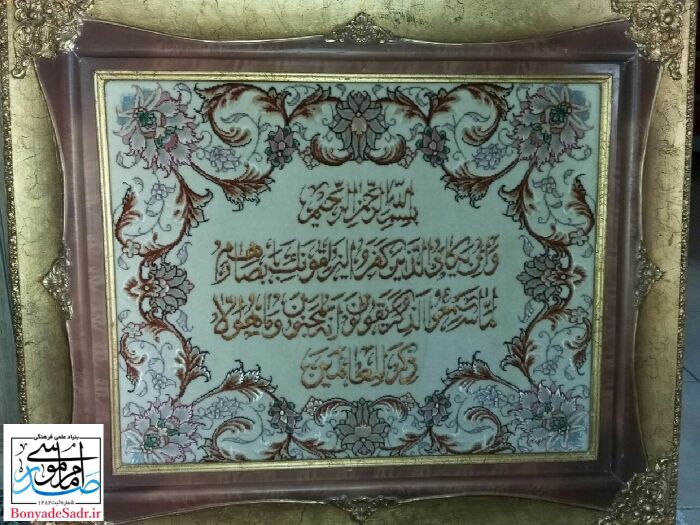 بسم الله الرحمن الرحیم
وان یکاد الذین کفروا لیزلقونک بابصارهم
لما سمعوا الذکر و یقولون انه لمجنون وما هو الا
ذکر للعالمین
بنیاد علمی فرهنگی
امام موسی صدر
شماره ثبت ۱۲۸۴
BonyadeSadr.ir